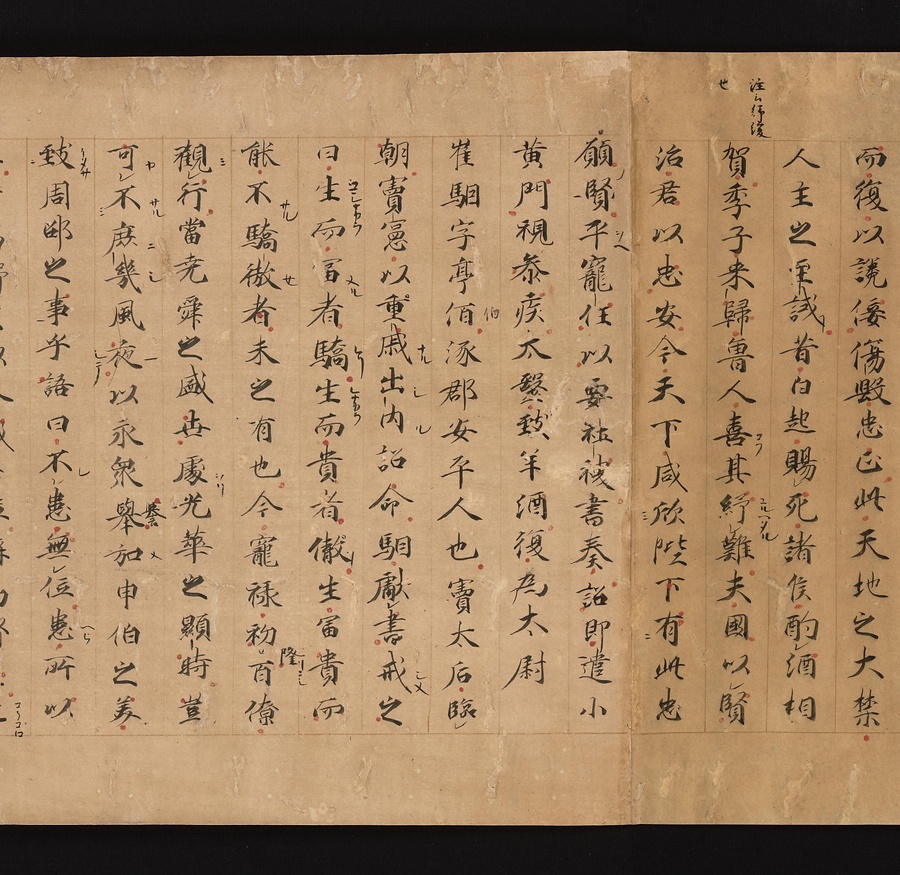 而復以讒佞傷毀忠正此天地之大禁
人主之重誡昔白起賜死諸侯酌酒相
賀季子来歸魯人喜其紓難夫國以賢
治君以忠安今天下咸欣陛下有此忠
願賢平寵任以要社稷書奏詔即遣小
黄門視忝疾太醫致羊酒復為太尉
崔駰字亭佰涿郡安平人也竇太后臨
朝竇憲以重戚出内詔命駰獻書戒之
曰生而冨者驕生而貴者傲生冨貴而
能不驕傲者未之有也今寵禄初百僚
觀行當尭舜之盛世處光華之顯時豈
可不庶幾風夜以永衆舉加申伯之美
致周邵之事乎語曰不患無位患所以
注云紓緩
也
伯
隆
譽